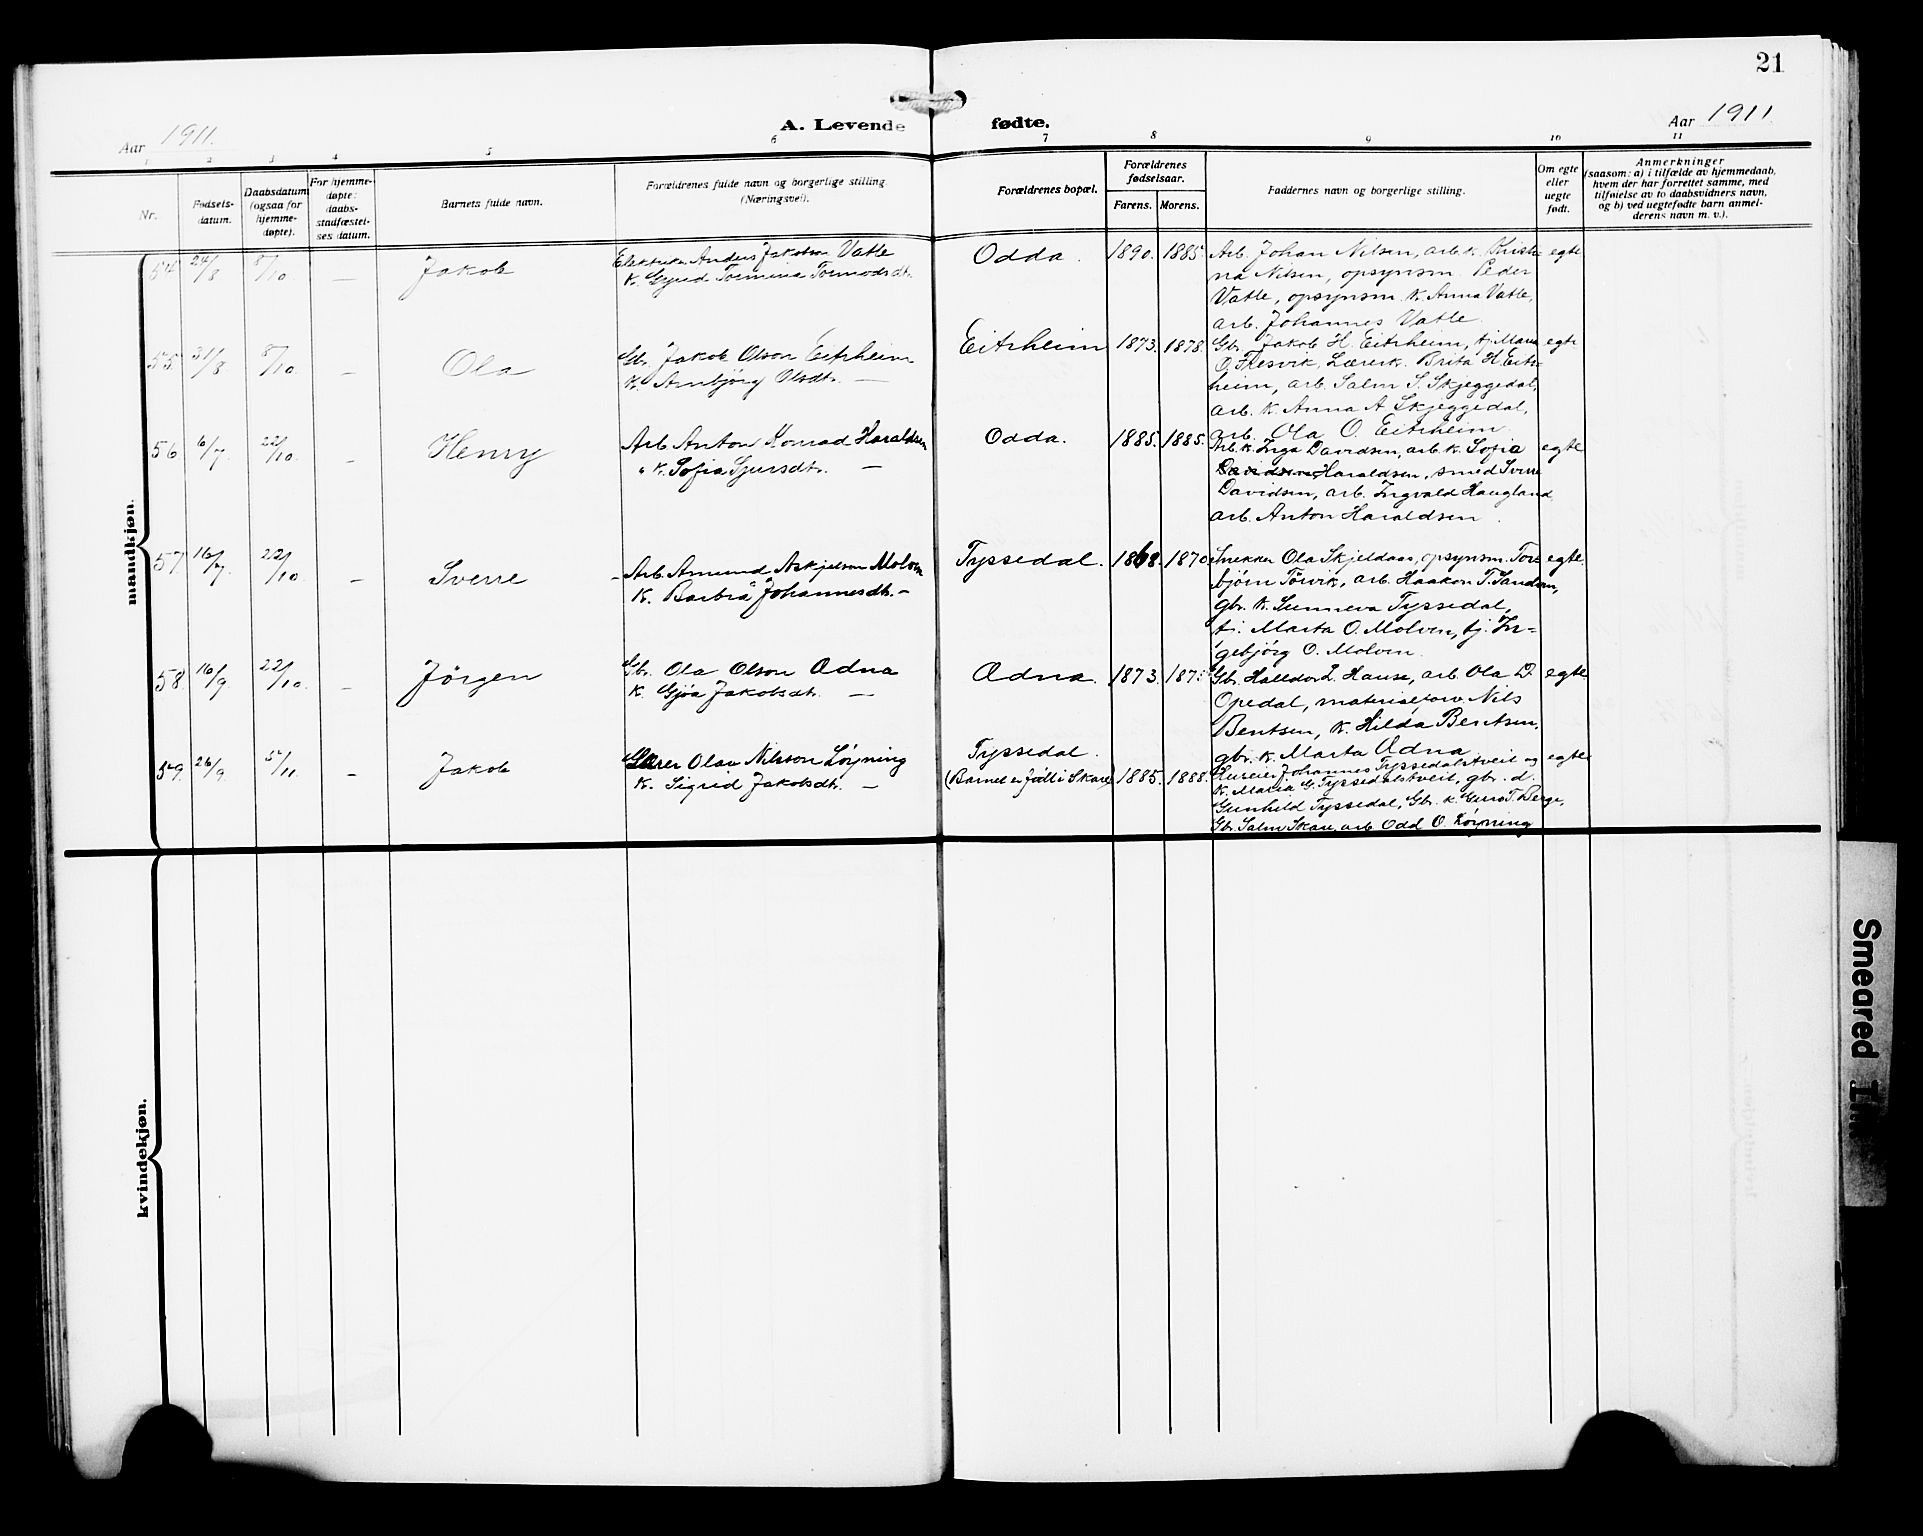 21
Aar 1911.
A. Levende fødte.
Aar 1911
1 2 3 4 5 6 7 8 9 10 11
Nr.
Fødsels-
datum.
Daabsdatum
(ogsaa for
hjemme-
døpte).
For hjemme-
døpte:
daabs-
stadfæstel-
ses datum.
Barnets fulde navn.
Forældrenes fulde navn og borgerlige stilling.
(Næringsvei).
Forældrenes bopæl.
Forældrenes
fødselsaar.
Farens. Morens.
Faddernes navn og borgerlige stilling.
Om egte
eller
uegte
født.
Anmerkninger
(saasom: a) i tilfælde av hjemmedaab,
hvem der har forrettet samme, med
tilføielse av to daabsvidners navn,
og b) ved uegtefødte barn anmel-
derens navn m. v.).
mandkjøn.
54 24/8 8/10 — Jakob
Anders Jakobson Vatle
K. Gyrid Tormodsdt.
Odda. 1890. 1885.
Arb. Johan Nilsen, arb. k. Kristi-
na Nilsen, opsynsm. Peder
Vatle, opsynsm. k. Anna Vatle,
arb. Johannes Vatle.
egte
55. 31/8 8/10. — Ola
Gbr. Jakob Olson Eitrheim
K. Arnbjørg Olsdt. —
Eitrheim 1873. 1878.
Gbr. Jakob H. Eitrheim, tj.
O. Flesvik, Lærerk. Brita H. Eitr-
heim, arb. Salm S. Skjeggedal,
arb. k. Anna A Skjeggedal,
arb. Ola O. Eitrheim.
egte
56 6/7. 22/10. — Henry
Arb. Anton Konrad Haraldsen
" K. Sofia Sjursdt. —
Odda. 1885. 1885.
Arb. k. Inga Davidsen, arb. k. Sofia
Davidsen, Haraldsen, smed Sverre
Davidsen, arb. Ingvald Haugland
arb. Anton Haraldsen.
egte
57 16/7. 22/10 — Sverre
Arb. Amund Askjelson Molven
K. Barbra Johannesdt. —
Tyssedal. 1868. 1870.
Snekker Ola Skjeldaas, opsynsm. Tor-
bjørn Tørvik, arb. Haakon T. Sandven,
gbr. k. Sunneva Tyssedal,
tj. Marta O. Molven, tj. In-
gebjørg O. Molven.
egte.
58. 16/9. 22/10. — Jørgen
Gbr. Ola Olson Ædna
K. Gjøa Jakobsdt. —
Ædna. 1873.
Gbr. Halldor L. Hause, arb. Ola D.
Opedal, materialforv. Nils
Bentsen, k. Hilda Bentsen,
gbr. k. Marta Ædna
egte
59. 26/9. 5/11. — Jakob
Olav Nilsson Løyning
K. Sigrid Jakobsdt. —
Tyssedal.
(Barnet er født i Skare) 1885. 1888.
Huseier Johannes Tyssedalstveit og
K. Maria G. Tyssedalstveit, gbr. d.
Gunhild Tyssedal, Gbr. k. Guro T. Berge,
Gbr. Salm Skare, arb Odd O. Løyning
egte
kvindekjøn.
Smeared